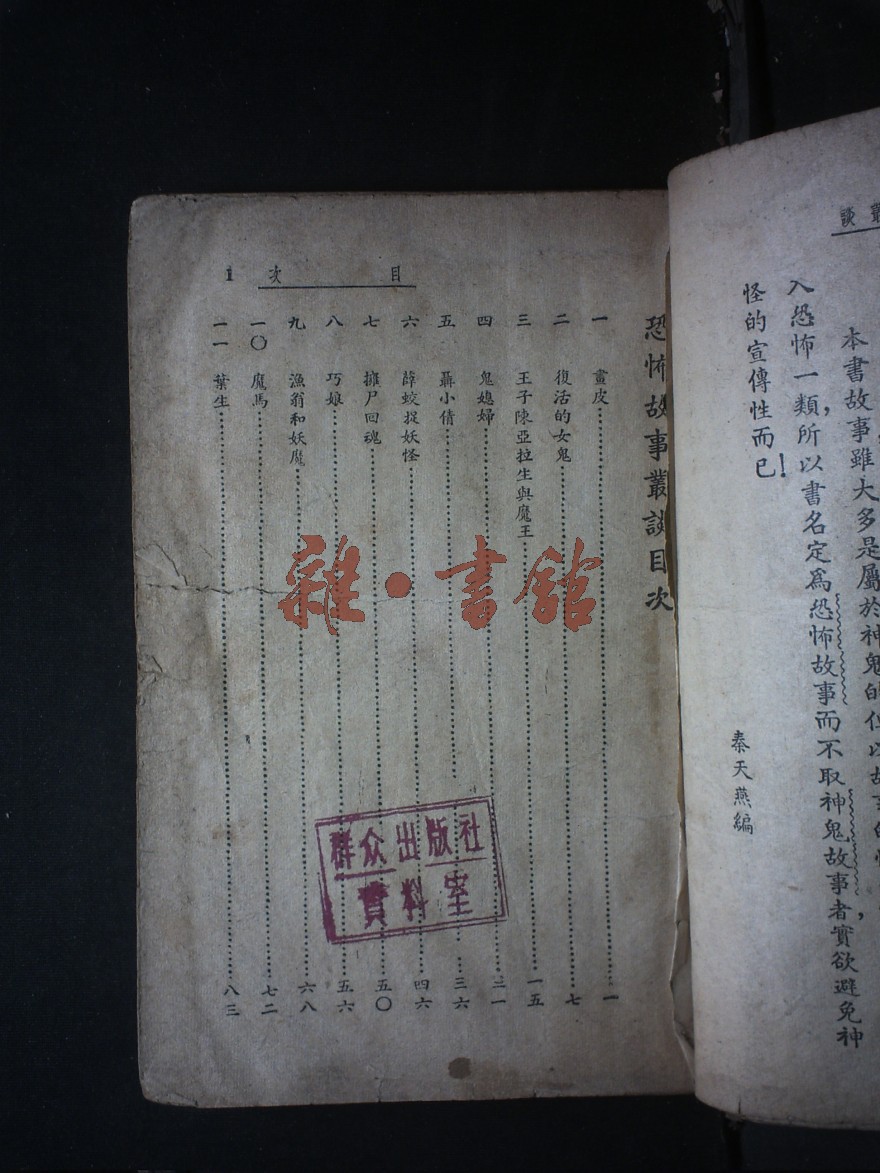 叢談
本書故事雖大多是屬於神鬼的但以故事的
入恐怖一類，所以書名定爲恐怖故事而不取神鬼故事者，實欲避免神
怪的宣傳性而已！
秦天燕編
目次 1
恐怖故事叢談目次
一 畫皮 一
二 復活的女鬼 七
三 王子陳亞拉生與魔王 一五
四 鬼媳婦 三一
五 聶小倩 三六
六 薛蛟捉妖怪 四六
七 擁尸回魂 五〇
八 巧娘 五六
九 漁翁和妖魔 六八
一〇 魔馬 七二
一一 葉生 八三
雜·書館
群众出版社
資料室